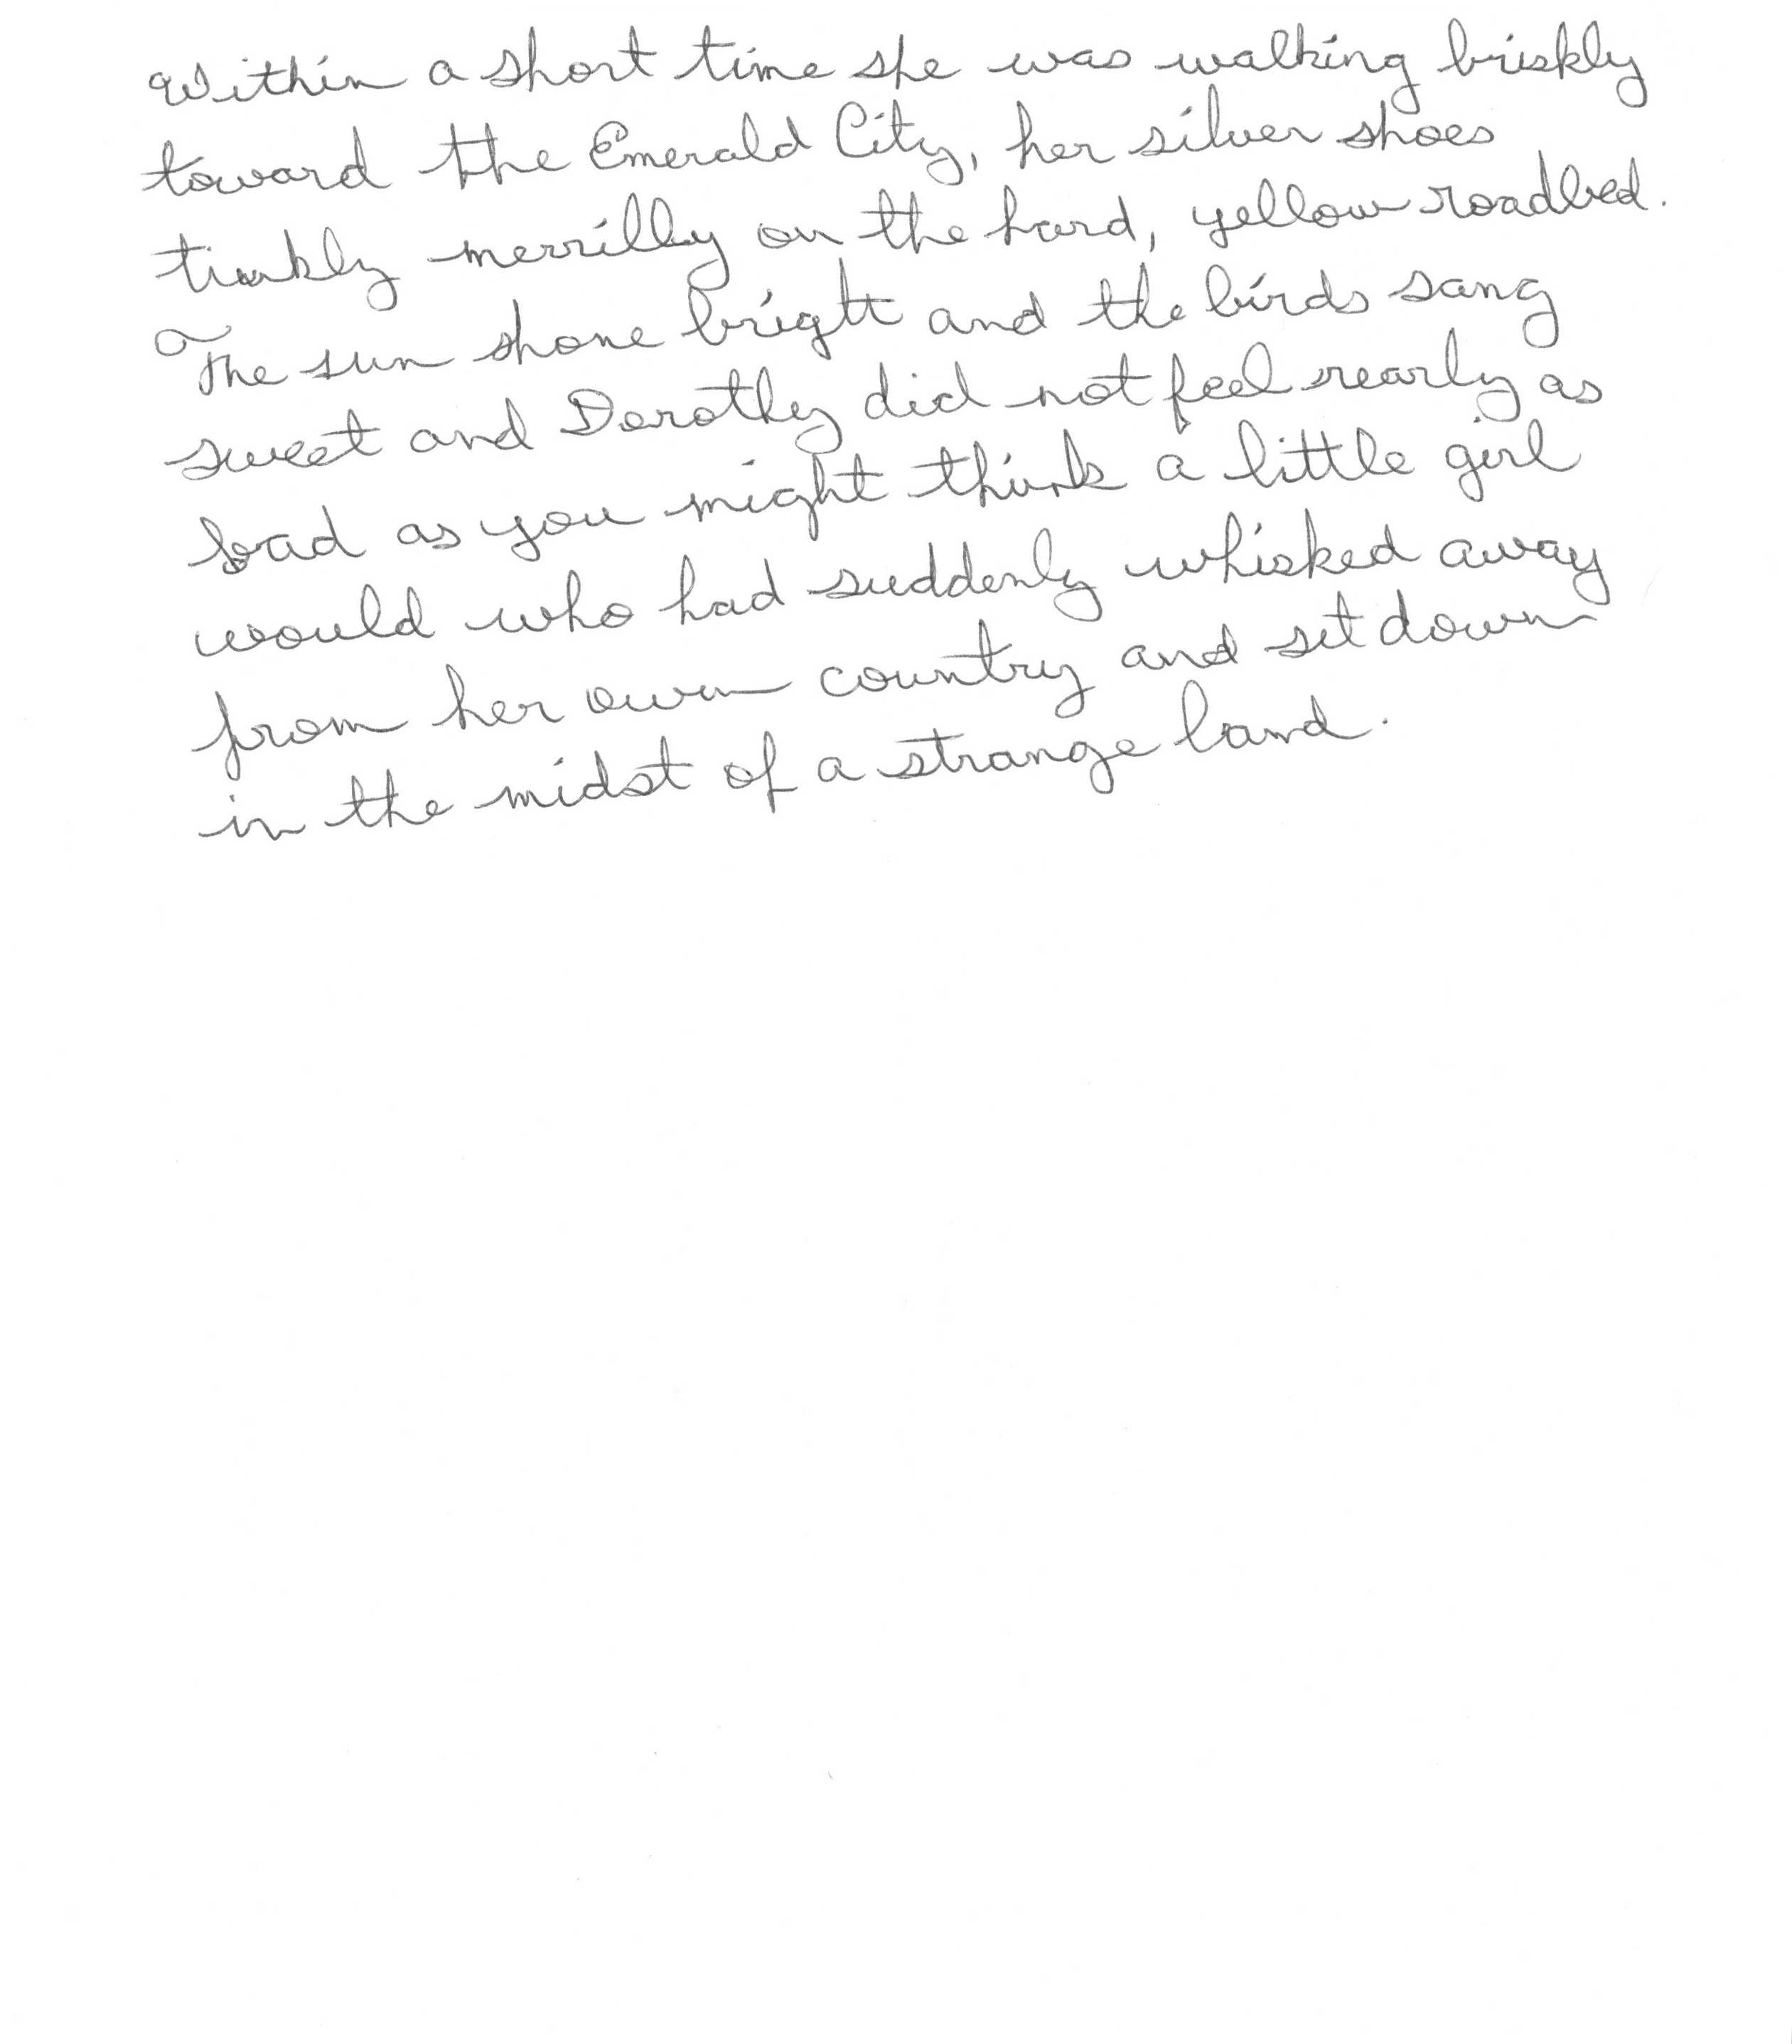 Within a short time she was walking briskly
toward the Emerald City, her silver shoes
tinkly merrilly on the hard, yellow roadbed.
The sun shone bright and the birds sang
sweet and Dorothy did not feel nearly as
bad as you might think a little girl
would who had suddenly whisked away
from her own country and set down
in the midst of a strange land.